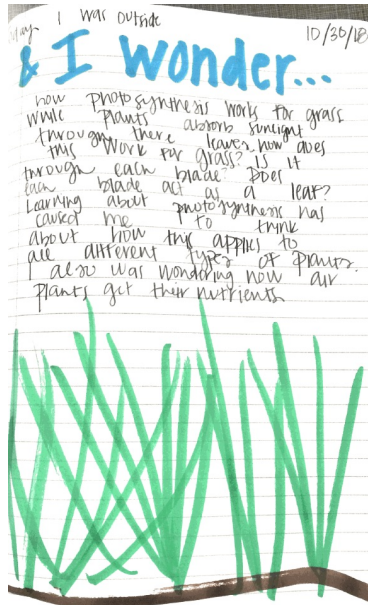 day I was outside 10/30/18
& I wonder...
how photosynthesis works for grass
While plants absorb sunlight
through there leaves, how does
this work for grass? Is it
through each blade? Does
each blade act as a leaf?
Learning about photosynthesis has
caused me to think
about how this applies to
all different types of plants.
I also was wondering how air
plants get their nutrients